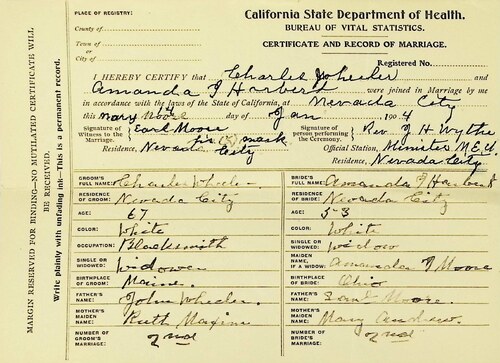 PLACE OF REGISTRY:
California State Department of Health.
BUREAU OF VITAL STATISTICS.
CERTIFICATE AND RECORD OF MARRIAGE.
County of
Town of
or
City of
Registered No.
I HEREBY CERTIFY that Charles Wheeler and
Amanda J Harbert were joined in Marriage by me
in accordance with the laws of the State of California, at Nevada City
this day of Jan 1904
Signature of Witness to the Marriage, Earl Moore
Mary Moore
his (X) mark
Residence, Nevada City
Signature of person performing the Ceremony, Rev. J H Wythe
Official Station, Minister M.E.
Residence, Nevada City.
MARGIN RESERVED FOR BINDING—NO MUTILATED CERTIFICATE WILL
BE RECEIVED.
Write plainly with unfading ink—This is a permanent record.
GROOM'S FULL NAME: Charles Wheeler
RESIDENCE OF GROOM: Nevada City
AGE: 67
COLOR: White
OCCUPATION: Blacksmith
SINGLE OR WIDOWED: Widower
BIRTHPLACE OF GROOM: Maine.
FATHER'S NAME: John Wheeler.
MOTHER'S MAIDEN NAME: Ruth
NUMBER OF GROOM'S MARRIAGE: 2nd
BRIDE'S FULL NAME: Amanda J Harbert
RESIDENCE OF BRIDE: Nevada City
AGE: 53
COLOR: White
SINGLE OR WIDOWED: Widow
MAIDEN NAME, IF A WIDOW: Amanda J Moore
BIRTHPLACE OF BRIDE: Ohio
FATHER'S NAME: Moore.
MOTHER'S MAIDEN NAME: Mary Andrew.
NUMBER OF BRIDE'S MARRIAGE: 2nd